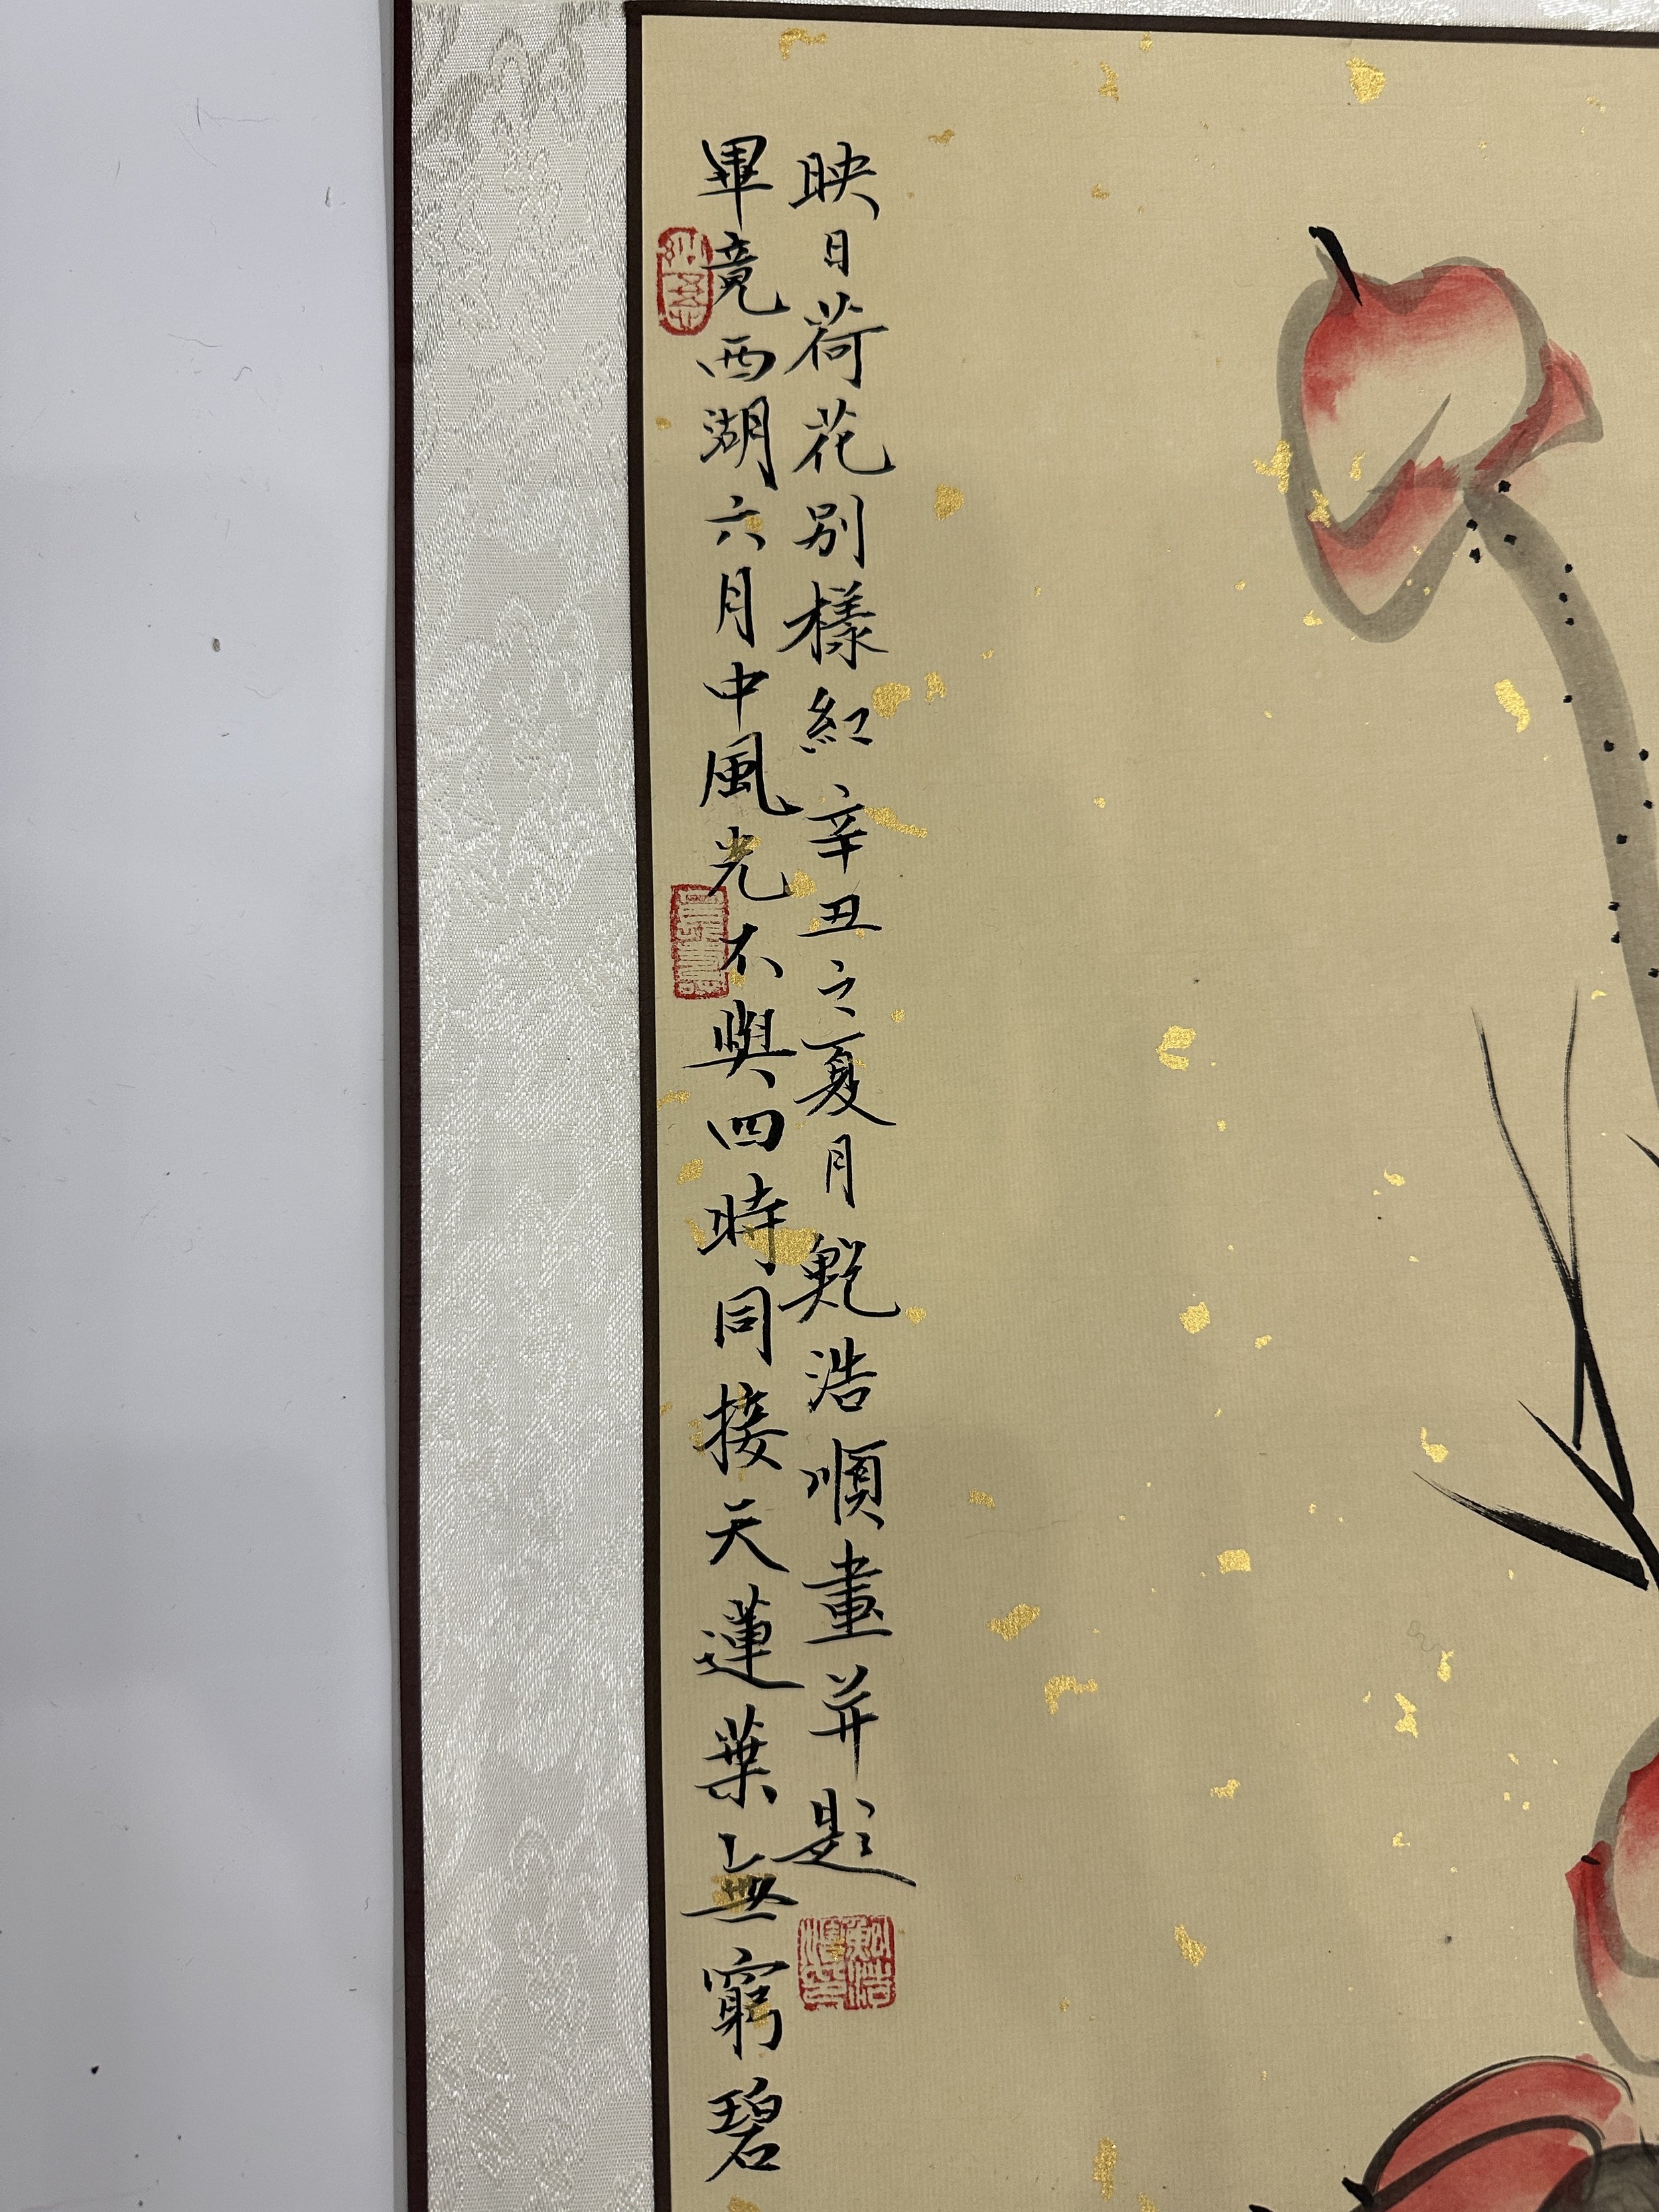 畢竟西湖六月中風光不與四時同接天蓮葉無窮碧
映日荷花別樣紅 辛丑之夏月 鮑浩順畫并題